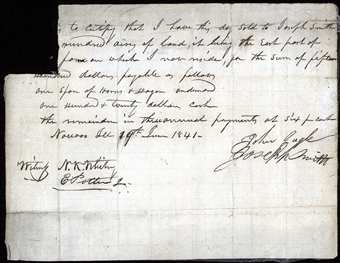 to certify that I have this day sold to Joseph Smith
hundred acres of land, it being the East part of
farm on which I now reside, for the Sum of fifteen
hundred dollars payable as follows
one Span of horses & wagon
one hundred & twenty dollars cash
the remainder in three annual payments at Six pr cent
Nauvoo Ill 19th June 1841 -
John
Joseph Smith
Witness N. K. Whitney